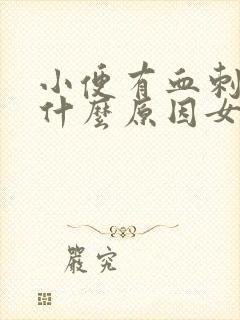 小便有血刺
什麼原因女
嚴究